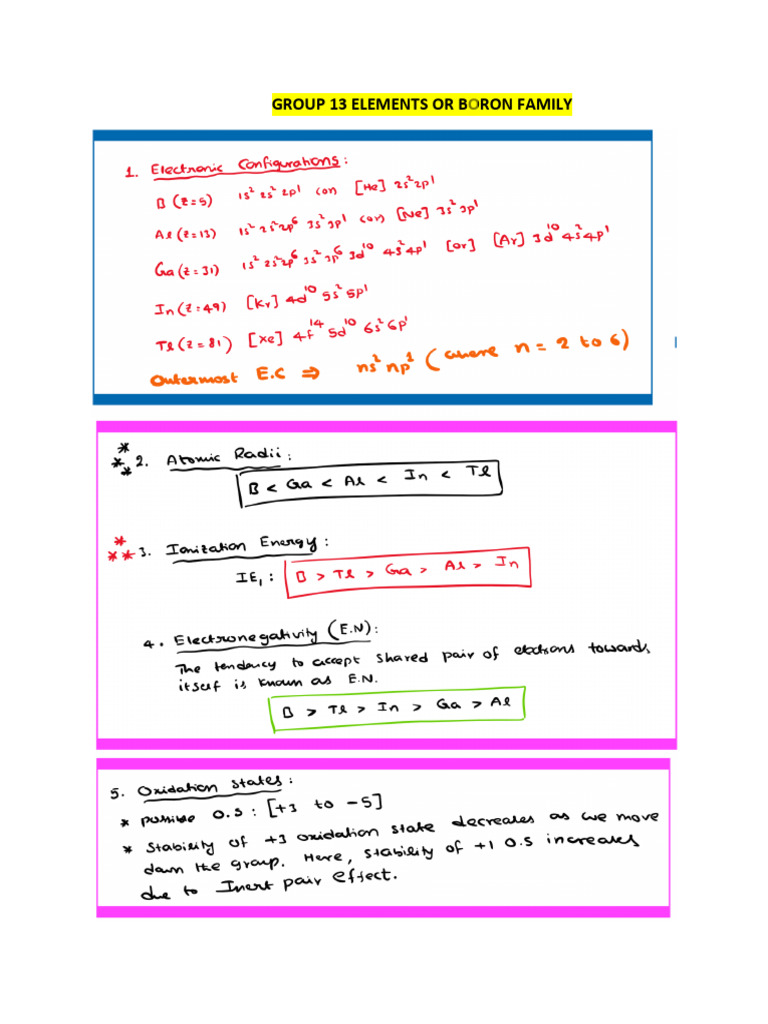 GROUP 13 ELEMENTS OR BORON FAMILY
1. Electronic Configurations:
B (Z=5) 1s² 2s² 2p¹ (or) [He] 2s² 2p¹
Al (Z=13) 1s² 2s² 2p⁶ 3s² 3p¹ (or) [Ne] 3s² 3p¹
Ga (Z=31) 1s² 2s² 2p⁶ 3s² 3p⁶ 3d¹⁰ 4s² 4p¹ [or] [Ar] 3d¹⁰ 4s² 4p¹
In (Z=49) [Kr] 4d¹⁰ 5s² 5p¹
Tl (Z=81) [Xe] 4f¹⁴ 5d¹⁰ 6s² 6p¹
Outermost E.C ⇒ ns² np¹ (where n = 2 to 6)
*** 2. Atomic Radii:
B < Ga < Al < In < Tl
*** 3. Ionization Energy:
IE₁: B > Tl > Ga > Al > In
4. Electronegativity (E.N):
The tendency to accept shared pair of electrons towards
itself is known as E.N.
B > Tl > In > Ga > Al
5. Oxidation states:
* possible O.S : [+3 to -5]
* Stability of +3 oxidation state decreases as we move
down the group. Here, stability of +1 O.S increases
due to Inert pair effect.